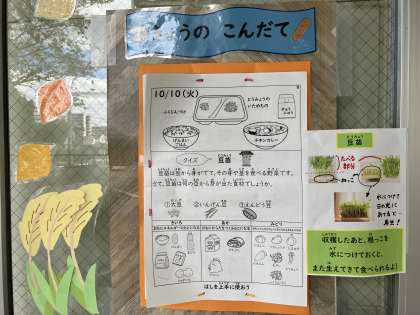 うの こんだて
10/10(火)
とうみょうの
いためもの
ぎゅうにゅう
げんまい
ごはん
チキンカレー
クイズ 豆苗
豆苗は豆から芽がでて、その芽や茎を食べる野菜です。
さて、豆苗は何の豆から芽が出た食材でしょうか。
①大豆 ②いんげん豆 ③えんどう豆
きいろ あか みどり
はしを上手に使おう
とうみょう
豆苗
たべる
部分
ねっこ
水につけて
日の光に
あてると…
再生!
収穫したあと、根っこを
水につけておくと、
また生えてきて食べられるよ!